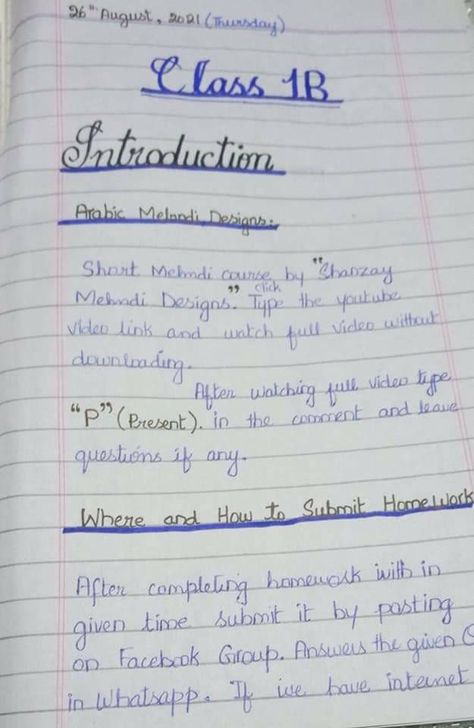 26th August, 2021 (Thursday)
Class 1B
Introduction
Arabic Mehndi Designs:
Short Mehndi course by "Shanzay
Click
Mehndi Designs". Type the youtube
video link and watch full video without
downloading.
After watching full video type
"P" (Present). in the comment and leave
questions if any.
Where and How to Submit HomeWork
After completing homework with in
given time submit it by posting
on Facebook Group. Answers the given
in Whatsapp. If we have internet